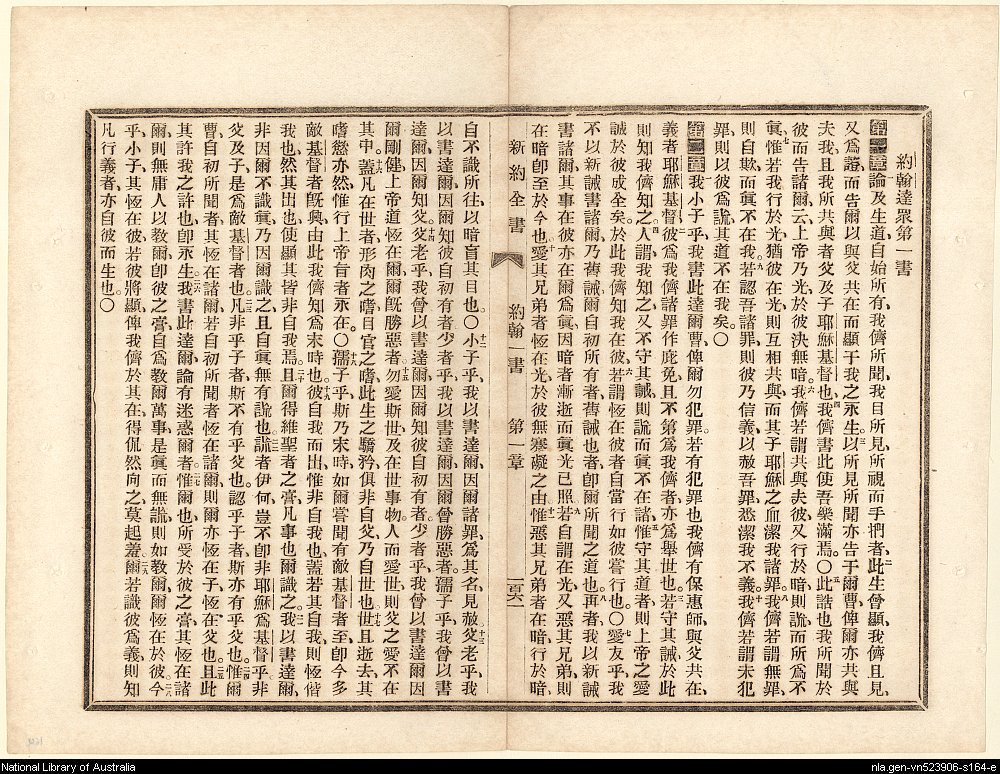 約翰達眾第一書
第一章論及生道、自始所有、我儕所聞、我目所見、所視而手捫者、此生曾顯、我儕且見、
又為證、而告爾以與父共在、而顯于我之永生、以所見所聞、亦告于爾曹、俾爾亦共與
夫我、且我所共與者、父及子耶穌基督也、我儕書此、使吾樂滿焉。〇此誥也、我所聞於
彼、而告諸爾云、上帝乃光、於彼決無暗、我儕若謂共與夫彼、又行於暗、則謊、而所為不
眞、惟若我行於光、猶彼在光、則互相共與、而其子耶穌之血、潔我諸罪、我儕若謂無罪、
則自欺、而眞不在我、若認吾諸罪、則彼乃信義、以赦吾罪、悉潔我不義、我儕若謂未犯
罪、則以彼為謊、其道不在我矣。〇
第二章我小子乎、我書此達爾曹、俾爾勿犯罪、若有犯罪也、我儕有保惠師、與父共在、
義者耶穌基督、彼為我儕諸罪作庇免、且不第為我儕者、亦為舉世也、若守其誡、於此
則知我儕知之、人謂我知之、又不守其誡、則謊、而眞不在諸、惟守其道者、則上帝之愛
誠於彼成全矣、於此我儕知我在彼、若謂恆在彼者、自當行如彼嘗行也。〇愛友乎、我
不以新誡書諸爾、乃舊誡、爾自初所有者、舊誡也者、卽爾所聞之道也、再者、我以新誡
書諸爾、其事在彼亦在爾為眞、因暗者漸逝、而眞光已照、若自謂在光、又惡其兄弟、則
在暗、卽至於今也、愛其兄弟者、恆在光、於彼無寒礙之由、惟惡其兄弟者、在暗、行於暗
新約全書 約翰一書 第一章
自不識所往、以暗盲其目也。〇小子乎、我以書達爾、因爾諸罪、為其名見赦、父老乎、我
以書達爾、因爾知彼自初有者、少者乎、我以書達爾、因爾曾勝惡者、孺子乎、我曾以書
達爾、因爾知父、父老乎、我曾以書達爾、因爾知彼自初有者、少者乎、我曾以書達爾、因
爾剛健、上帝道恆在爾、爾旣勝惡者、勿愛斯世、及在世事物、人而愛世、則父之愛不在
其中、蓋凡在世者、形肉之嗜、目官之嗜、此生之驕矜、俱非自父、乃自世也、世且逝去、其
嗜慾亦然、惟行上帝旨者永在。〇孺子乎、斯乃末時、如爾嘗聞有敵基督者至、卽今多
敵基督者旣興、由此我儕知為末時也、彼自我而出、惟非自我也、蓋若其自我、則恆偕
我也、然其出也、使顯其皆非自我焉、且爾得維聖者之膏、凡事也爾識之、我以書達爾、
非因爾不識眞、乃因爾識之、且自眞無有謊也、謊者伊何、豈不卽非耶穌為基督乎、非
父及子、是為敵基督者也、凡非乎子者、斯不有乎父也、認乎子者、斯亦有乎父也、惟爾
曹自初所聞者、其恆在諸爾、若自初所聞者恆在諸爾、則爾亦恆在子、恆在父也、且此
其許我之許也、卽永生、我書此達爾、論有迷惑爾者、惟爾也、所受於彼之膏、其恆在諸
爾、則無庸人以教爾、卽彼之膏、自為教爾萬事、是眞而無謊、則如教爾、爾恆在於彼、今
乎小子、其恆在彼、若彼將顯、俾我儕於其在、得侃然向之、莫起羞、爾若識彼為義、則知
凡行義者、亦自彼而生也。〇
National Library of Australia
nla.gen-vn523906-s164-e